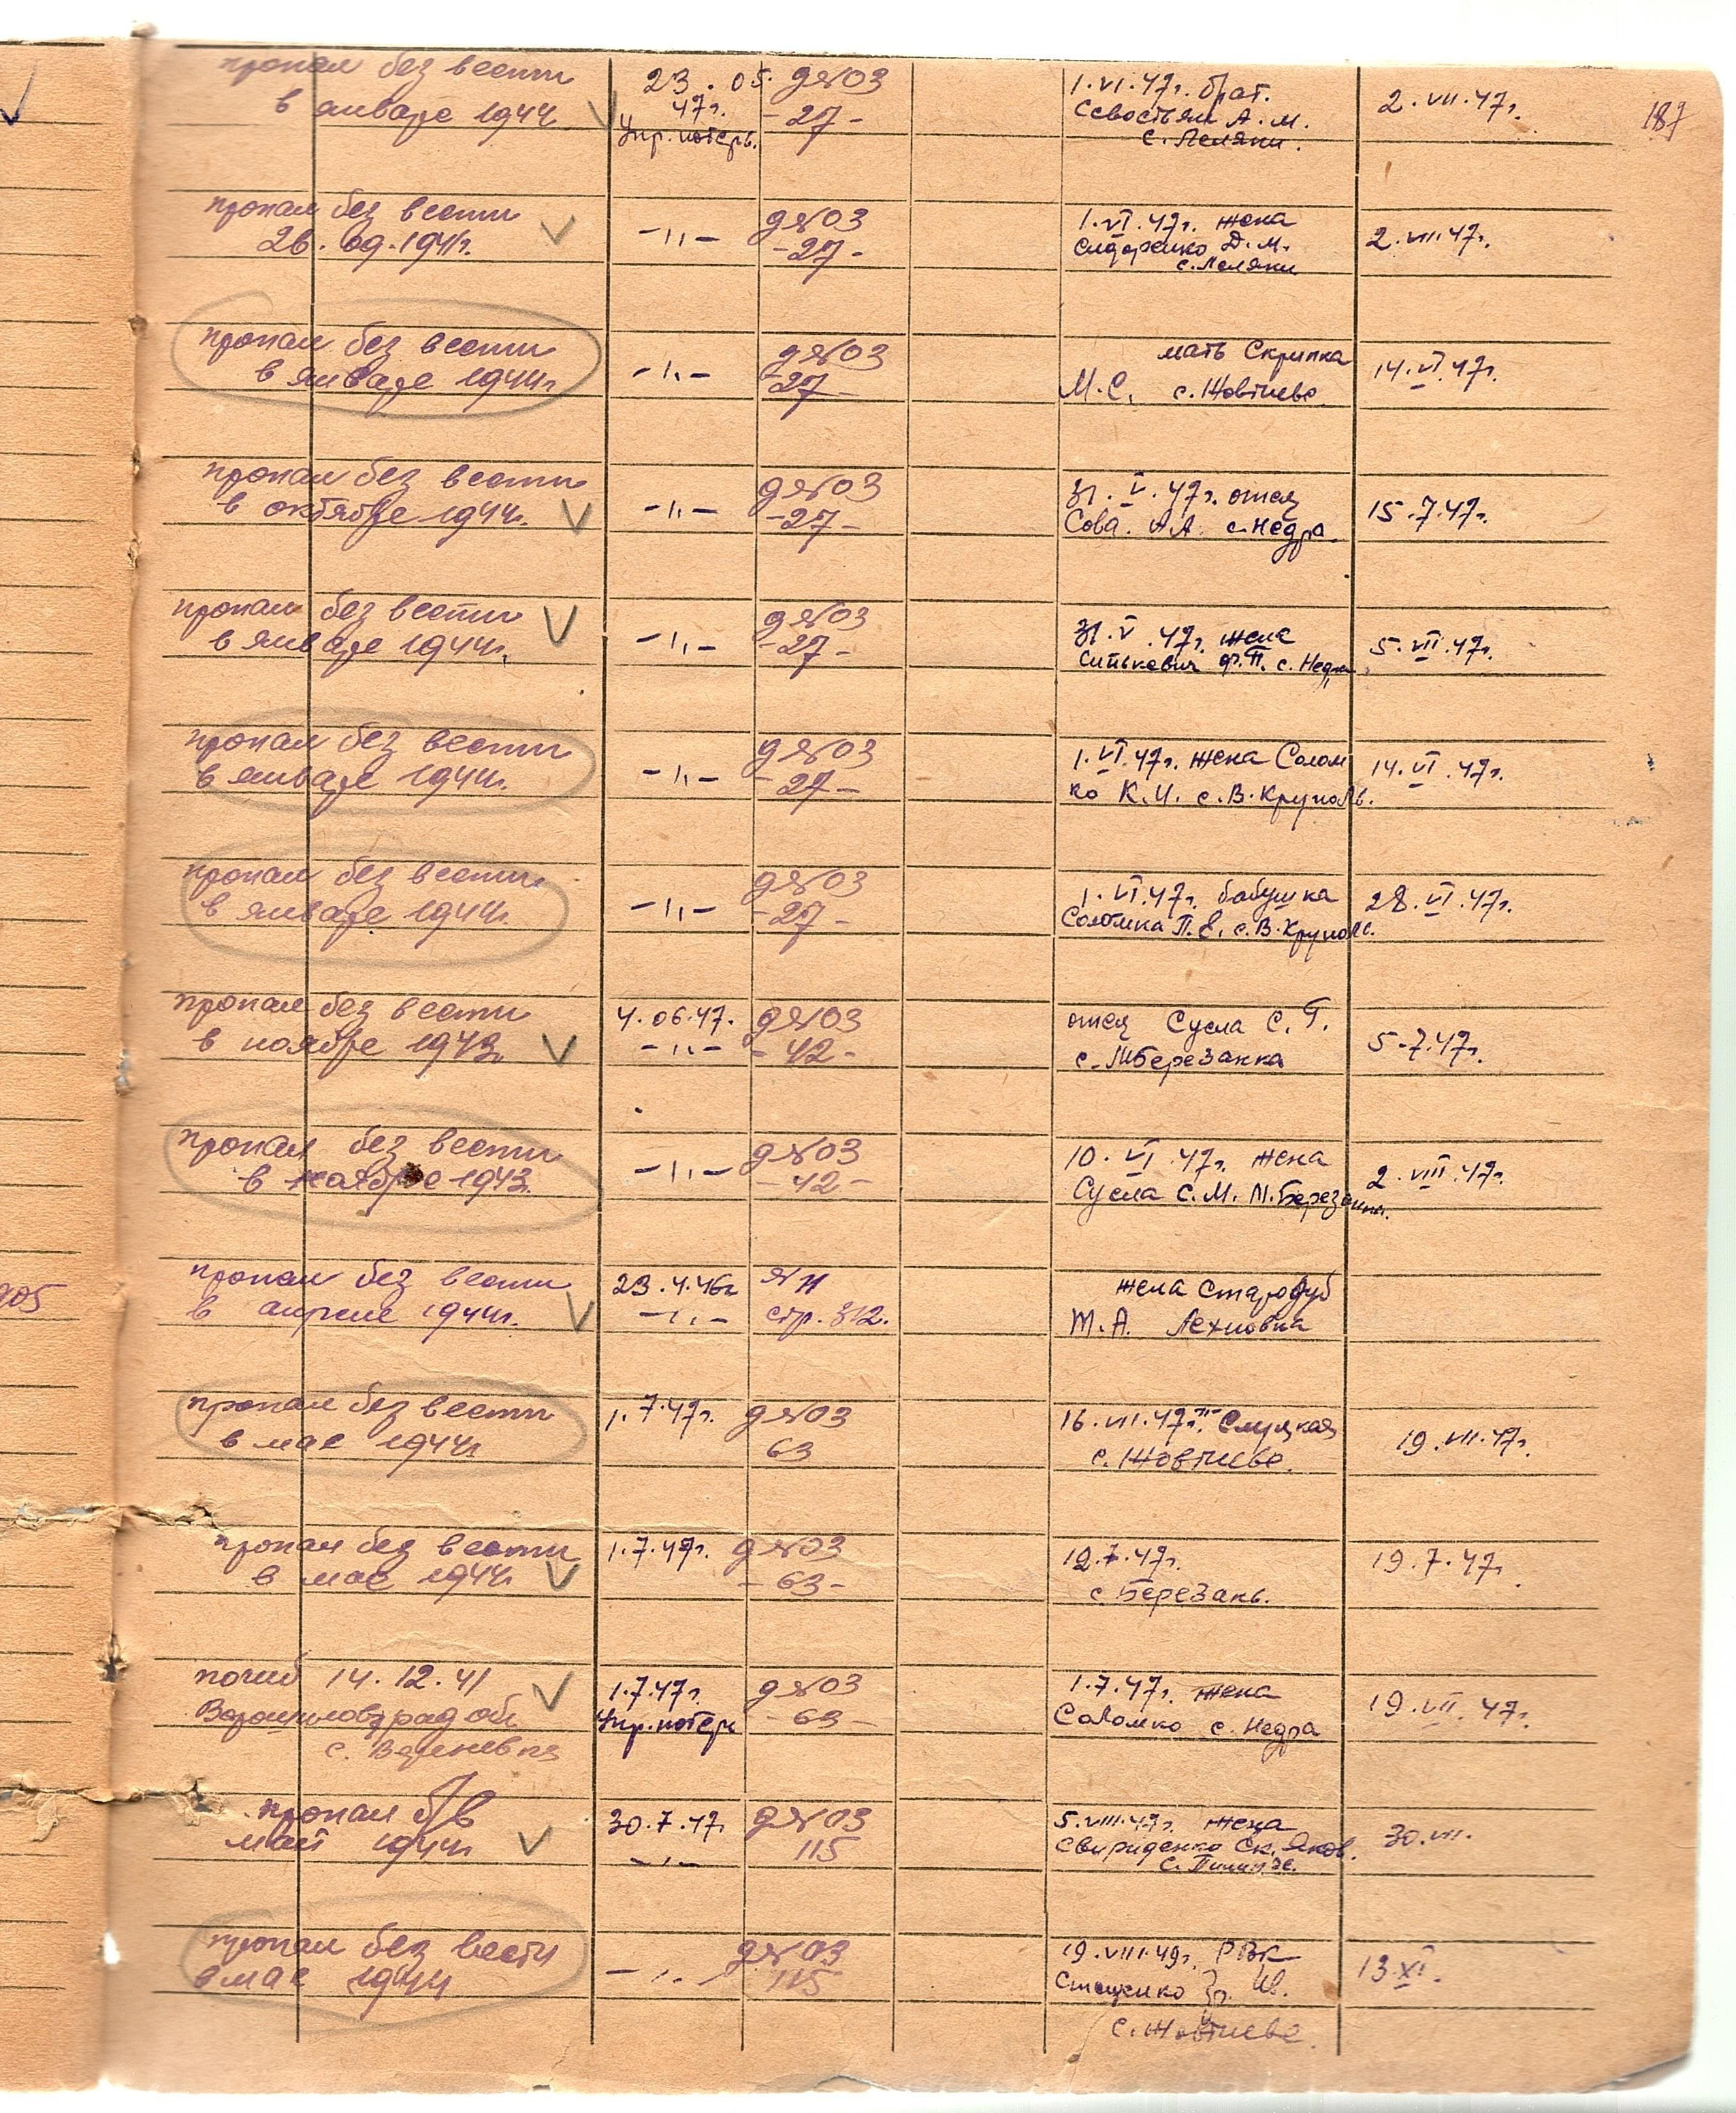 187
пропал без вести
в январе 1944
23.05.
47г.
Упр. потерь.
д №03
-27-
1.VI.47г. брат.
Севостьян А.М.
с. Леляки.
2.VII.47г.
пропал без вести
26.09.1941г.
-"-
д №03
-27-
1.VI.47г. жена
Сидоренко Д.М.
с. Леляки
2.VII.47г.
пропал без вести
в январе 1944г.
-"-
д №03
-27-
мать Скрипка
М.С. с. Жовтнево
14.VI.47г.
пропал без вести
в октябре 1944г.
-"-
д №03
-27-
31.V.47г. отец
Сова. А.А. с. Недра.
15.7.47г.
пропал без вести
в январе 1944г.
-"-
д №03
-27-
31.V.47г. жена
Ф.П. с. Недра
5.VII.47г.
пропал без вести
в январе 1944г.
-"-
д №03
-27-
1.VI.47г. жена Солом
ко К.И. с. В. Круполь.
14.VI.47г.
пропал без вести
в январе 1944г.
-"-
д №03
-27-
1.VI.47г. бабушка
П.Е. с. В. Круполь.
28.VI.47г.
пропал без вести
в ноябре 1943г
4.06.47.
-"-
д №03
-42-
отец Сусла С.Г.
с. МБерезанка
5-7.47г.
пропал без вести
в ноябре 1943.
-"-
д №03
-42-
10.VI.47г. жена
Сусла С.М. М. Березанка.
2.VIII.47г.
905
пропал без вести
в апреле 1944г.
23.4.46г
-"-
№ 11
стр. 312.
жена Стародуб
М.А. Лехновка
пропал без вести
в мае 1944г
1.7.47г.
д №03
63
16.VII.47г. Слуцкая
с. Жовтнево.
19.VII.47г.
пропал без вести
в мае 1944г
1.7.47г.
д №03
-63-
19.7.47г.
с. Березань.
19.7.47г.
погиб 14.12.41
Ворошиловград обл
с.
1.7.47г.
Упр. потерь
д №03
-63-
1.7.47г. жена
Соломко с. Недра
19.VII.47г.
пропал б/в
май 1944г
30.7.47г
-"-
д №03
115
5.VIII.47г. жена
Свириденко Ск. Яков.
с.
30.VII.
пропал без вести
в мае 1944г
-"-
д №03
115
19.VIII.49г. РВК
Стаценко Гр. Ив.
с. Жовтнево.
13.XI.